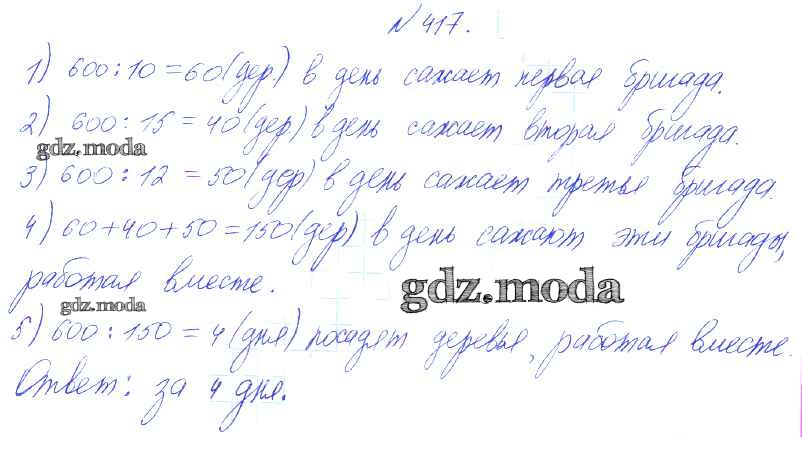 № 417.
1) 600:10=60(дер.) в день сажает первая бригада.
2) 600:15=40(дер) в день сажает вторая бригада.
gdz.moda
3) 600:12=50(дер) в день сажает третья бригада.
4) 60+40+50=150(дер) в день сажают эти бригады,
работая вместе.
gdz.moda
gdz.moda
5) 600:150=4(дня) посадят деревья, работая вместе.
Ответ: за 4 дня.